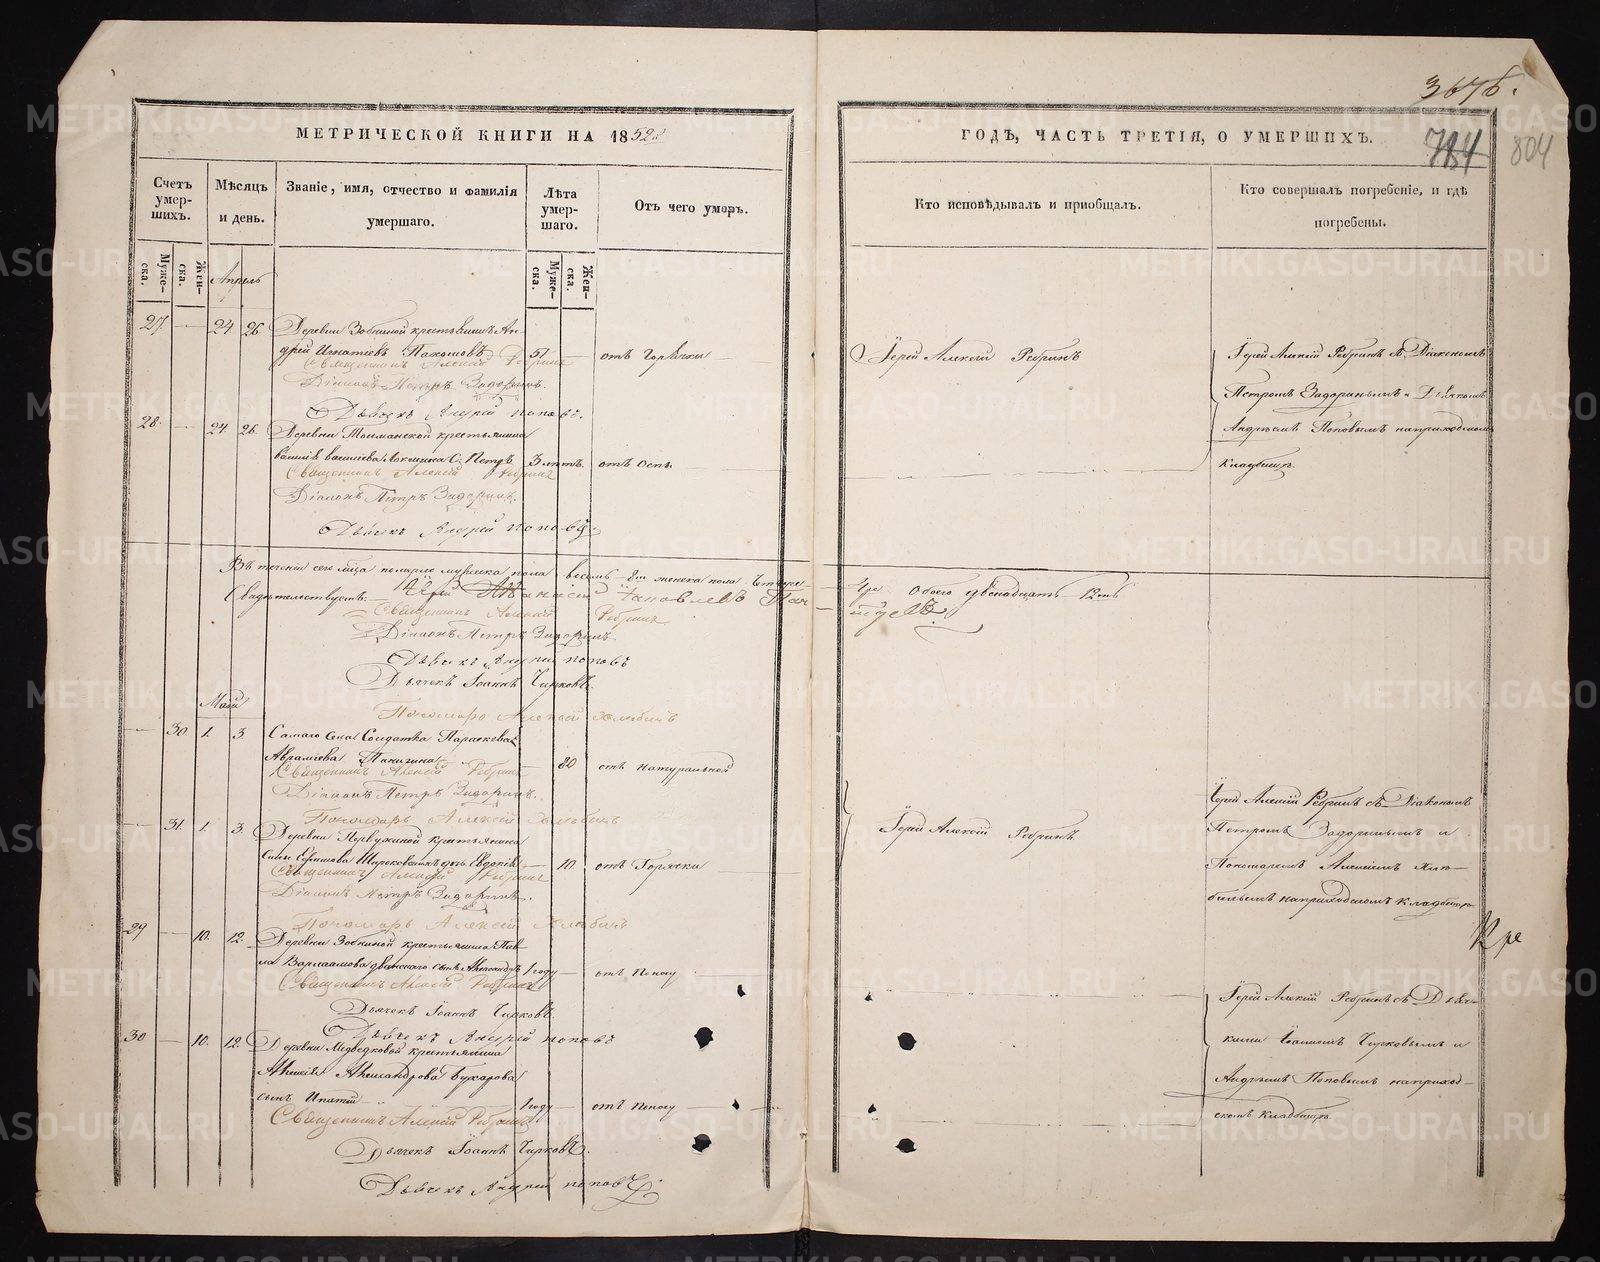 367б.
784 804
МЕТРИЧЕСКОЙ КНИГИ НА 1852й
ГОДЪ, ЧАСТЬ ТРЕТІЯ, О УМЕРШИХЪ.
Счетъ умер-
шихъ.
Мѣсяцъ
и день.
Званіе, имя, отчество и фамилія
умершаго.
Лѣта
умер-
шаго.
Отъ чего умеръ.
Кто исповѣдывалъ и пріобщалъ.
Кто совершалъ погребеніе, и гдѣ
погребены.
Муже-
ска.
Жен-
ска.
Муже-
ска.
Жен-
ска.
Апрель
27 — 24 26 Деревни Зобниной крестьянинъ Ан-
дрей Игнатіевъ Пахомовъ 51 — отъ Горячки
Священникъ Алексій Ребринъ
Діаконъ Петръ Задоринъ.
Дьячекъ Андрей Поповъ.
Іерей Алексій Ребринъ
Іерей Алексій Ребринъ съ Діакономъ
Петромъ Задоринымъ и Дьячкомъ
Андреемъ Поповымъ на приходскомъ
кладбищѣ.
28 — 24 26 Деревни крестьянина
Василія Васильева сынъ Петръ 3 лѣтъ. отъ оспы
Священникъ Алексій Ребринъ
Діаконъ Петръ Задоринъ.
Дьячекъ Андрей Поповъ.
Въ теченіи сего мѣсяца померло мужеска пола восемь 8 женска пола четыре
4ре обоего двенадцать 12ть
Свидѣтельствуетъ: Іерей
Священникъ Алексій Ребринъ
Діаконъ Петръ Задоринъ.
Дьячекъ Андрей Поповъ
Дьячекъ Іоаннъ Чирковъ.
Пономарь Алексій Хлыбинъ
Май
— 30 1. 3 Самаго Села Солдатка Параскева
Авраміева — 80 отъ натуральной
Священникъ Алексій Ребринъ
Діаконъ Петръ Задоринъ.
Пономарь Алексій Хлыбинъ
— 31. 1. 3. Деревни Первухиной крестьянина
Ефимова дочь Евдокія — 10. отъ Горячки
Священникъ Алексій Ребринъ
Діаконъ Петръ Задоринъ.
Пономарь Алексій Хлыбинъ
Іерей Алексій Ребринъ
Іерей Алексій Ребринъ съ Діакономъ
Петромъ Задоринымъ и
Пономаремъ Алексіемъ Хлы-
бинымъ на приходскомъ кладбищѣ.
29 — 10. 12. Деревни Зобниной крестьянина Пав-
ла Варлаамова сынъ Александръ 1 году — отъ поносу
Священникъ Алексій Ребринъ
Дьячекъ Іоаннъ Чирковъ
Дьячекъ Андрей Поповъ
30 — 10. 12. Деревни Медведковой крестьянина
Алексія Александрова Бухарова
сынъ Ипатій 1 году — отъ поносу
Священникъ Алексій Ребринъ
Дьячекъ Іоаннъ Чирковъ.
Дьячекъ Андрей Поповъ.
Іерей Алексій Ребринъ съ Дьяч-
ками Іоанномъ Чирковымъ и
Андреемъ Поповымъ на приход-
скомъ кладбищѣ.
METRIKI.GASO-URAL.RU